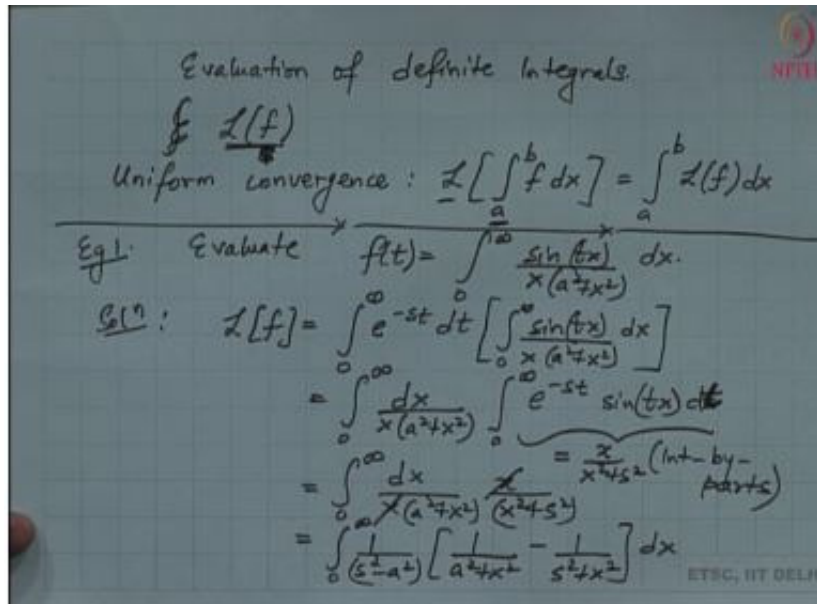 Evaluation of definite Integrals.
NPTEL
£ L(f)
Uniform convergence : L[∫_a^b f dx] = ∫_a^b L(f) dx
Eg1. Evaluate f(t) = ∫_0^∞ sin(tx)/(x(a²+x²)) dx.
Solⁿ : L[f] = ∫_0^∞ e^{-st} dt [∫_0^∞ sin(tx)/(x(a²+x²)) dx]
= ∫_0^∞ dx/(x(a²+x²)) ∫_0^∞ e^{-st} sin(tx) dt
= x/(x²+s²) (Int-by-parts)
= ∫_0^∞ dx/(x(a²+x²)) x/(x²+s²)
= ∫_0^∞ 1/(s²-a²) [1/(a²+x²) - 1/(s²+x²)] dx
ETSC, IIT DELHI